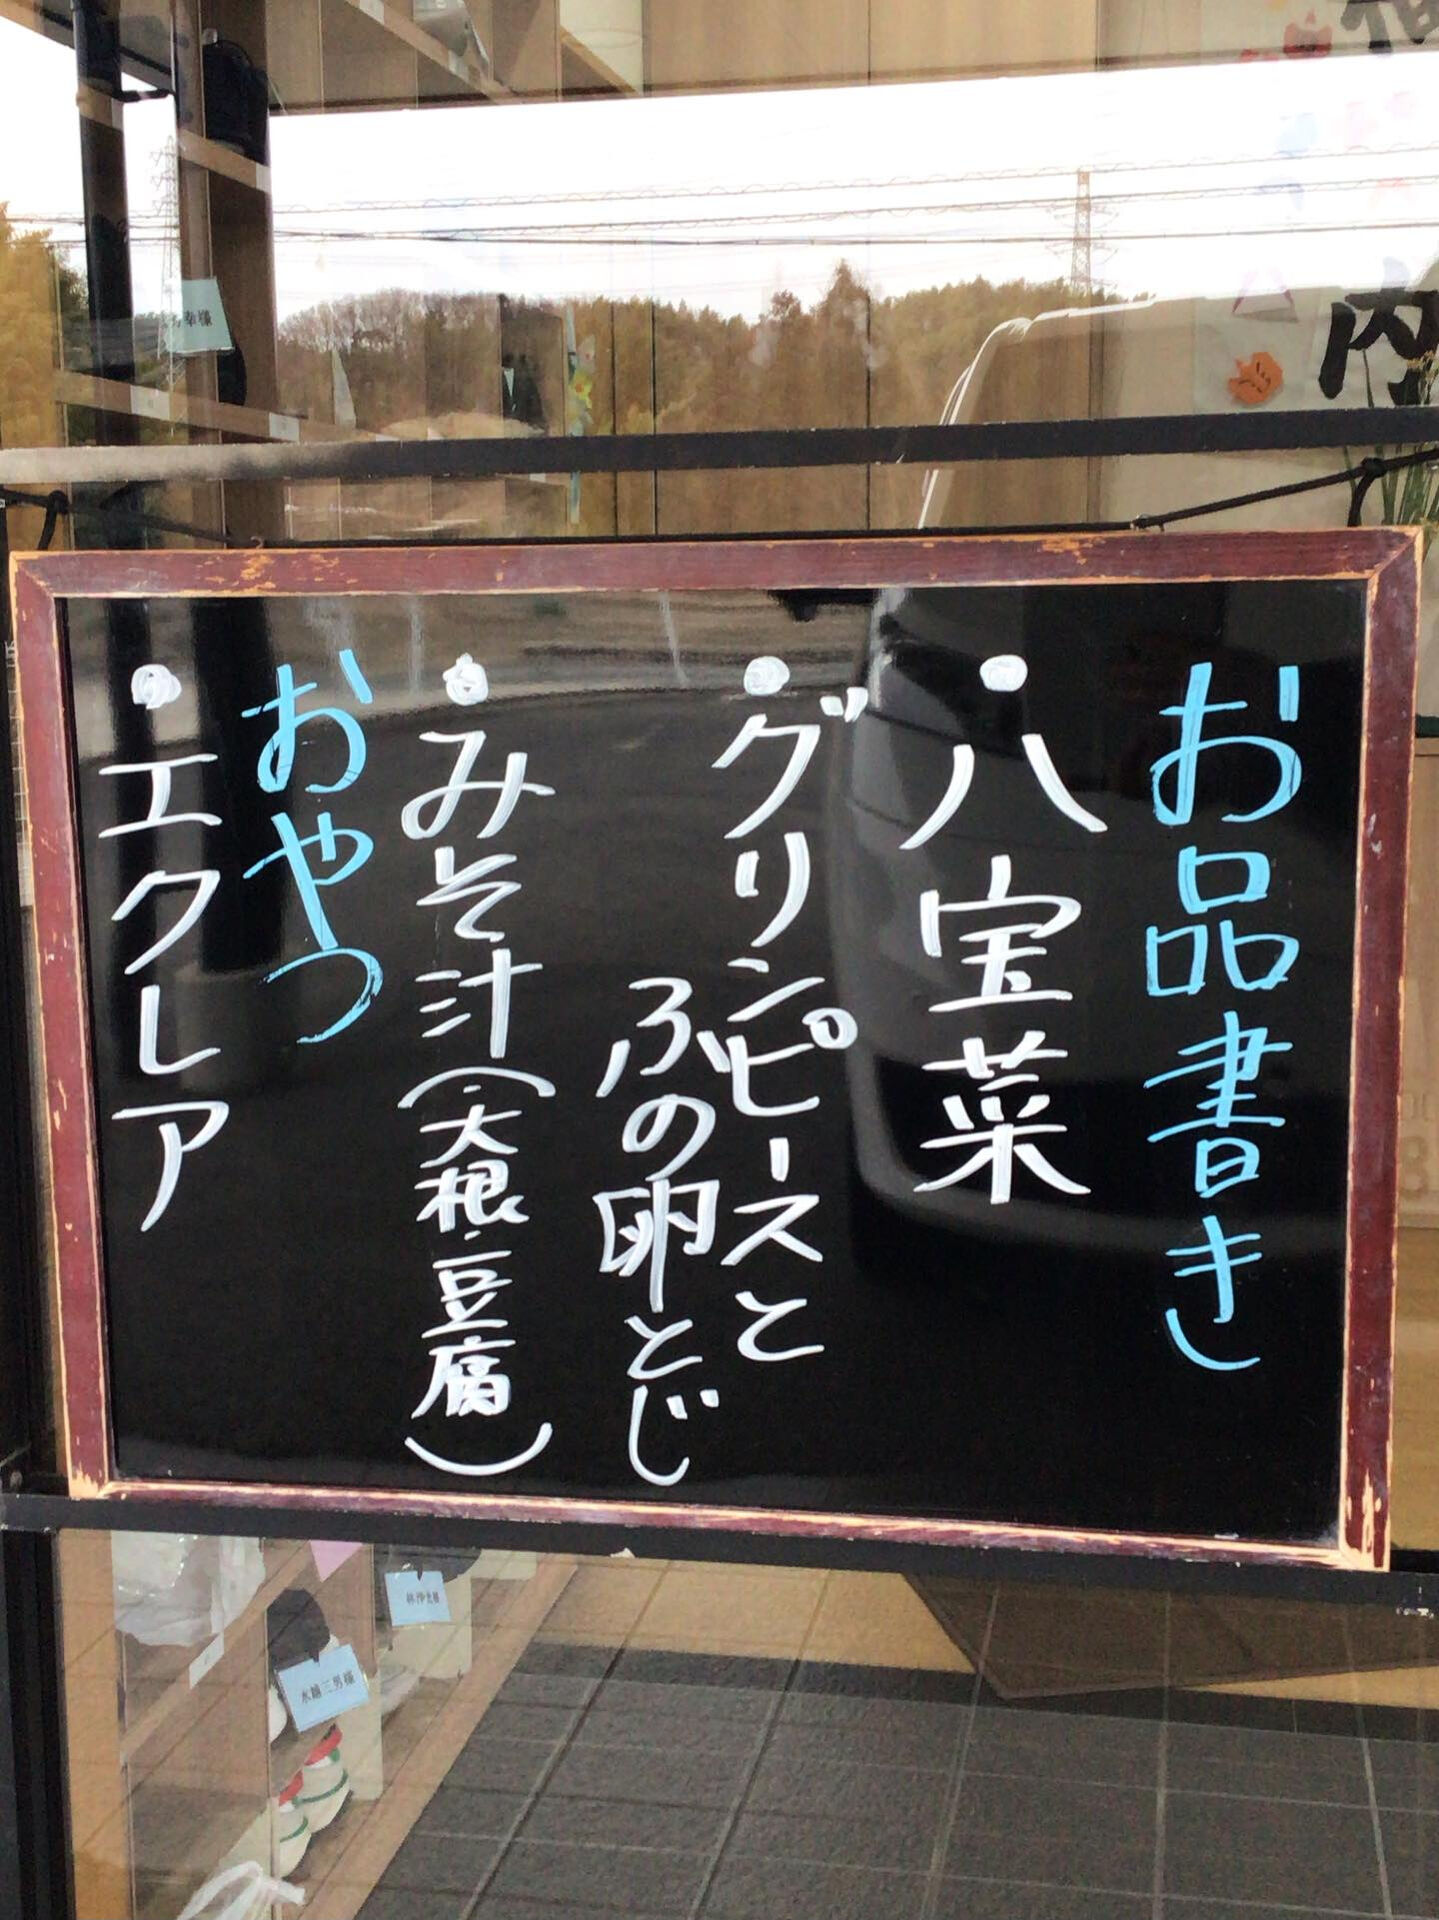 お品書き
・八宝菜
・グリンピースと
ふの卵とじ
・みそ汁(大根・豆腐)
おやつ
・エクレア
内